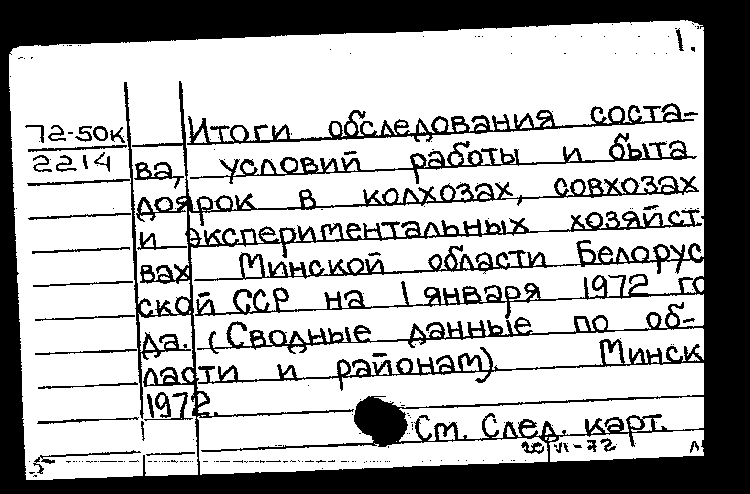 1.
72-50к Итоги обследования соста-
2214 ва, условий работы и быта
доярок в колхозах, совхозах
и экспериментальных хозяйст-
вах Минской области Белорус
ской ССР на 1 января 1972 го
да. (Сводные данные по об-
ласти и районам). Минск
1972.
См. След. карт.
20/VI-72
5